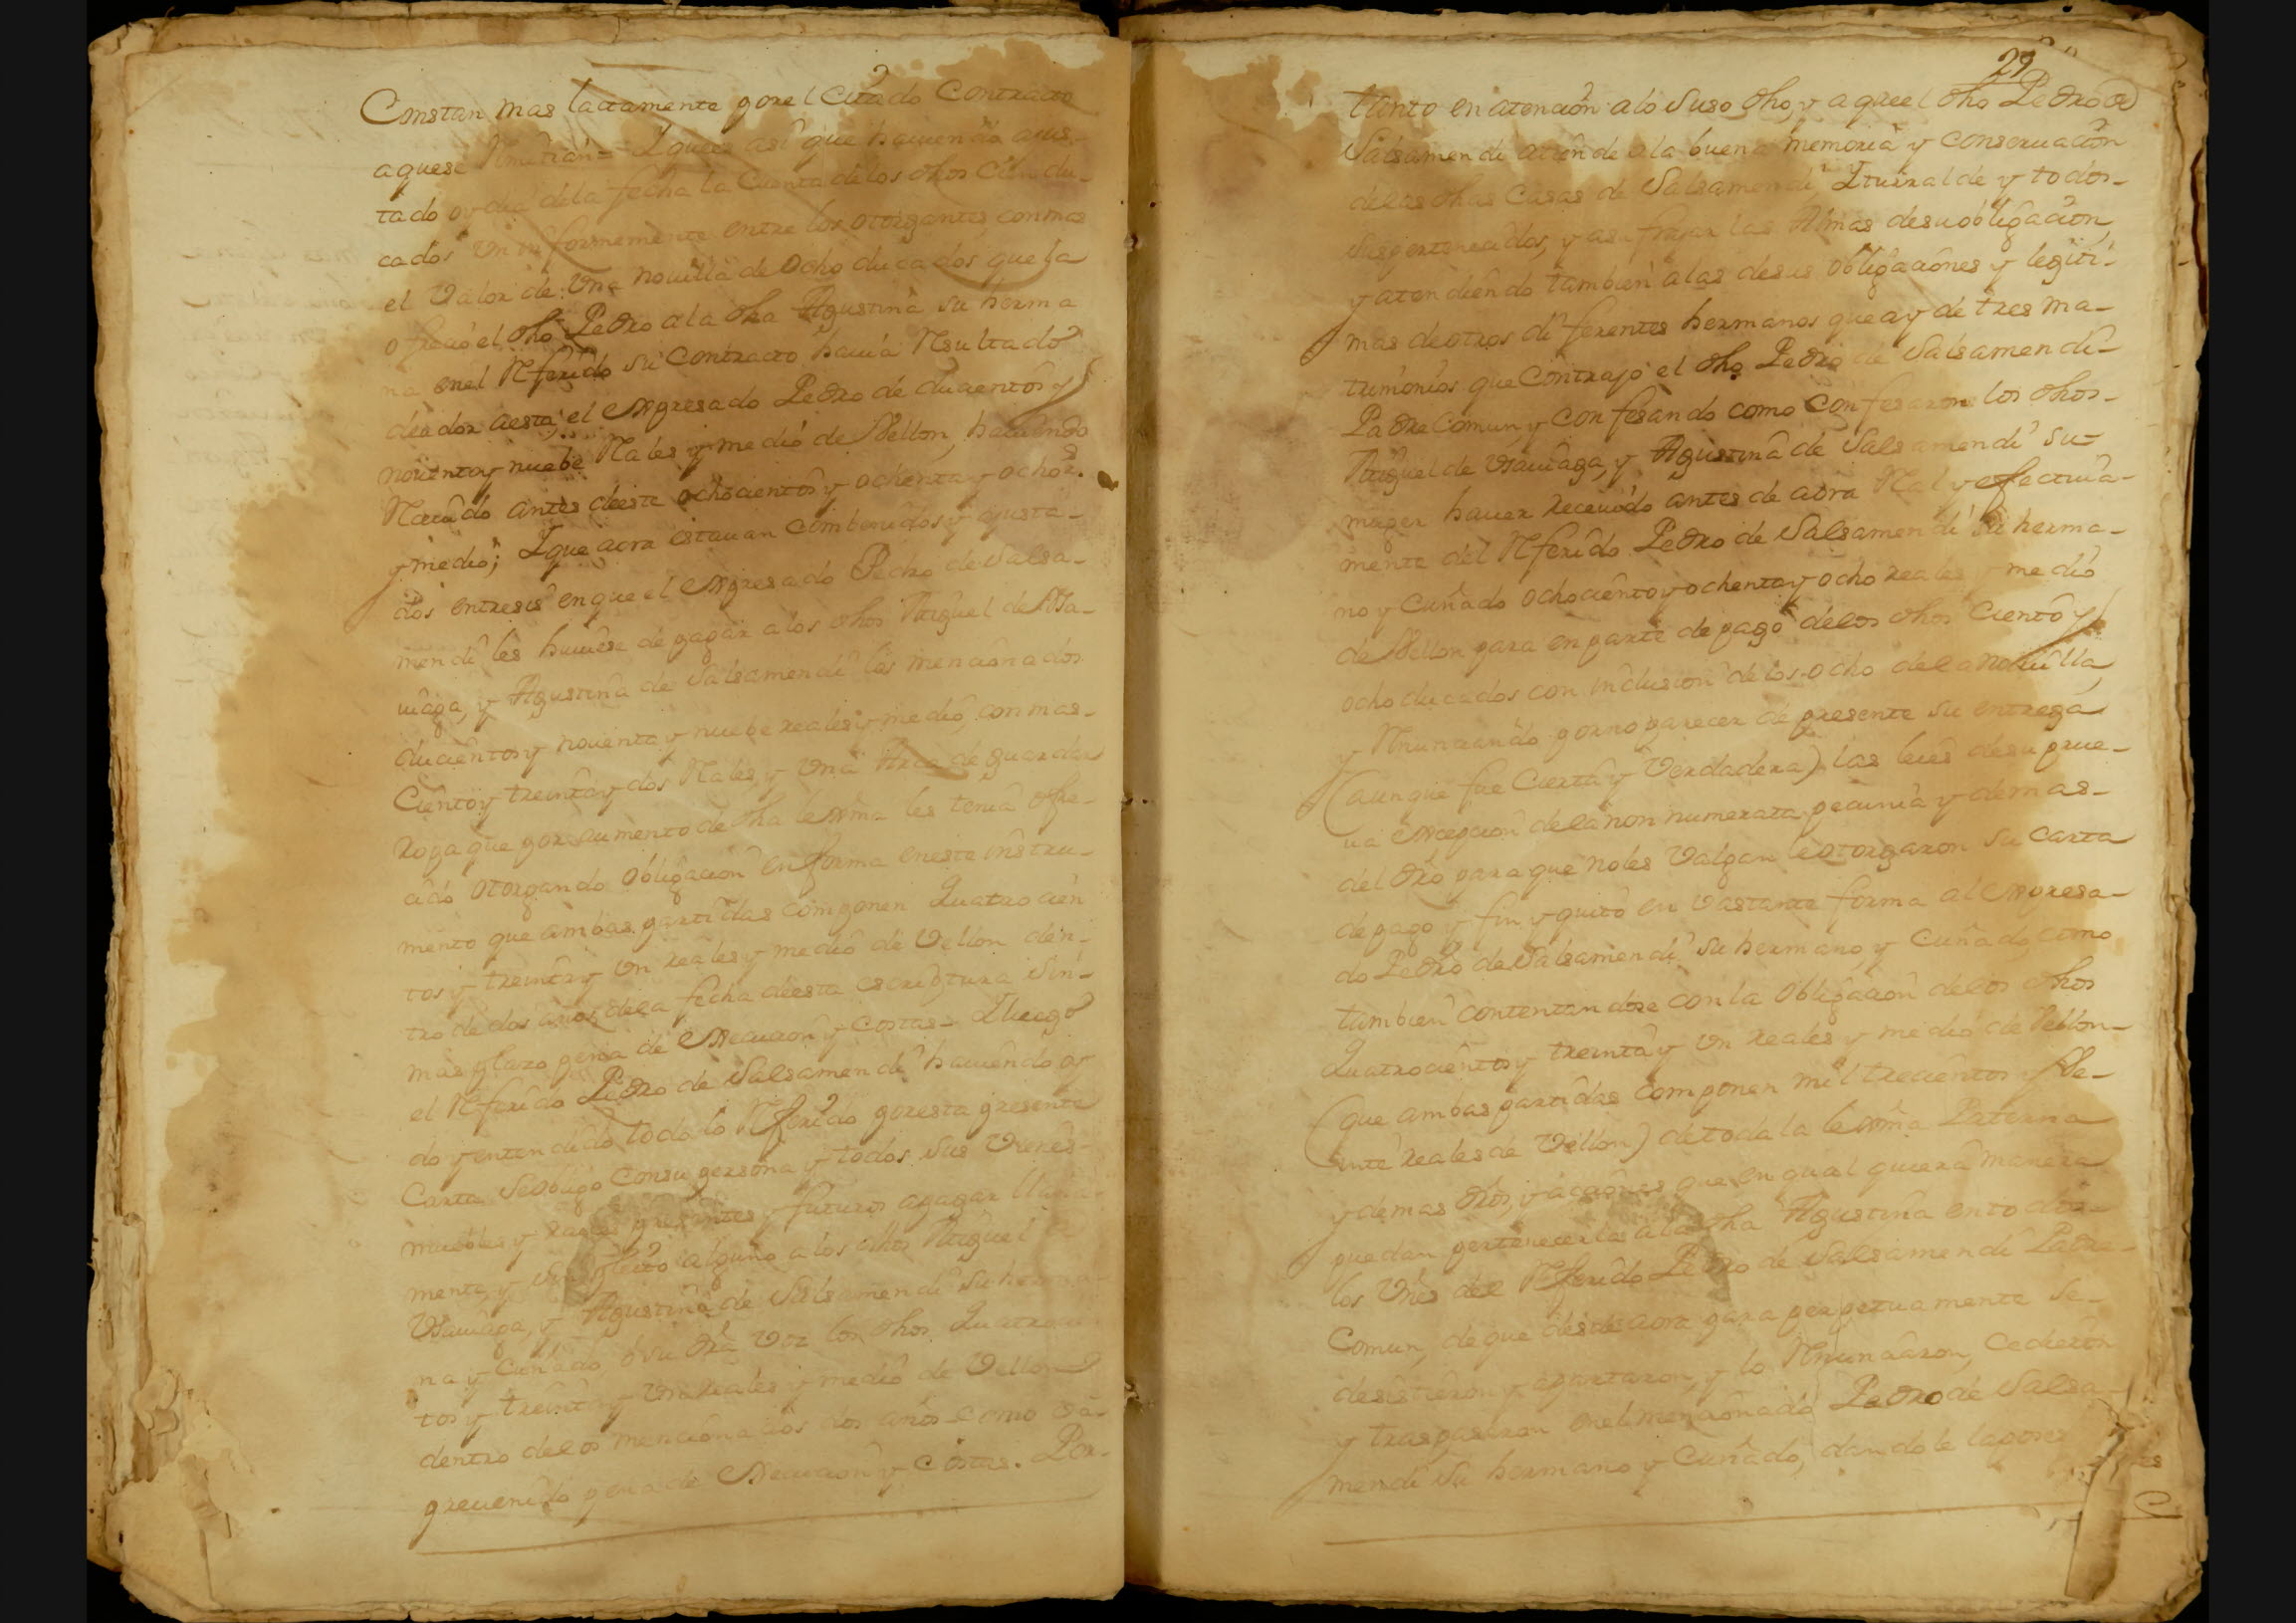 Constan mas lactamente por el Citado Contracto
aquese Rmitian = Y que es asi que hauiendo ajus-
tado oy dia dela fecha la Cuenta delos dhos Cien du-
cados Uniformemente entre los otorgantes con mas
el Valor de Una nouilla de Ocho ducados que la
ofrecio el dho Pedro ala dha Agustina su herma
na enel Rferido su Contracto hauia Rsultado
deudor aesta el expresado Pedro de ducientos y
nouentay nuebe Rales y medio de Vellon, hauiendo
Reciuido antes deeste ochocientos y ochenta y ocho rs.
y medio; Y que aora estauan Combenidos y ajusta-
dos entresis en que el expresado Pedro de Salsa-
mendi les huuiese de pagar alos dhos Miguel de Vsa-
uiaga, y Agustina de Salsamendi los mencionados
ducientos y nouenta y nuebe reales y medio, con mas
Ciento y treinta y dos Rales, y Una Arca de guardar
Ropa que por aumento de dha lexma les tenia ofre-
cido otorgando obligacion en forma en este instru-
mento que ambas partidas componen Quatrocien
tos y treinta y Un reales y medio de Vellon den-
tro de dos años dela fecha deesta escriptura Sin
mas plazo pena de execucion y costas = Y luego
el Rferido Pedro de Salsamendi hauiendo oy
do y entendido todo lo Rferido por esta presente
Carta Se obligo Consu persona y todos sus Vienes
muebles y raices presentes y futuros apagar llana
mente, y Sin pleito alguno a los dhos Miguel de
Vsauiaga, y Agustina de Salsamendi Su herma-
na y Cuñado o su dra Voz los dhos Quatrocien
tos y treinta y Un reales y medio de Vellon
dentro delos mencionados dos años como va
preuenido pena de execucion y costas. Por-
29
tanto en atencion alo Suso dho, y a que el dho Pedro de
Salsamendi atiende ala buena memoria y conseruacion
delas dhas Casas de Salsamendi Yturralde y todos
sus pertenecidos, y asufrajar las Almas desu obligacion,
y atendiendo tambien alas desus obligaciones y legiti-
mas de otros diferentes hermanos que ay de tres ma-
trimonios que Contrajo el dho Pedro de Salsamendi
Padre Comun, y confesando como Confesaron los dhos
Miguel de Vsauiaga, y Agustina de Salsamendi su
muger hauer Receuido antes de aora Ral y efectiua-
mente del Rferido Pedro de Salsamendi su herma-
no y Cuñado ochociento y ochenta y ocho reales y medio
de Vellon para en parte de pago delos dhos Ciento y
ocho ducados con inclusion de los ocho dela nouilla,
y Rnunciando por no parecer de presente su entrega
(aunque fue Cierta y Verdadera) las leies desu prue-
ua excepcion dela non numerata pecunia y demas
del dro para que noles Valgan le otorgaron su Carta
de pago y fin y quito en Vastante forma al expresa-
do Pedro de Salsamendi su hermano y Cuñado, como
tambien contentandose con la Obligacion delos dhos
Quatrocientos y treinta y Un reales y medio de Vellon
(que ambas partidas componen mil trecientos y Ve-
inte reales de Vellon) de toda la lexma Paterna
y demas dros, y acciones que en qual quiera manera
puedan pertenecerlas ala dha Agustina en todos
los Vnes del Rferido Pedro de Salsamendi Padre
Comun, de que desde aora para perpetuamente se
desistieron y apartaron, y lo Rnunciaron, Cedieron
y traspasaron enel mencionado Pedro de Salsa-
mendi su hermano y Cuñado, dandole la poses